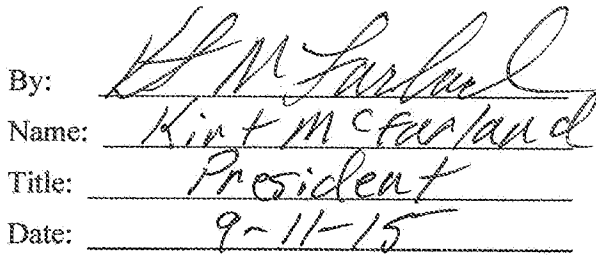 By: Kirt McFarland
Name: Kirt McFarland
Title: President
Date: 9-11-15